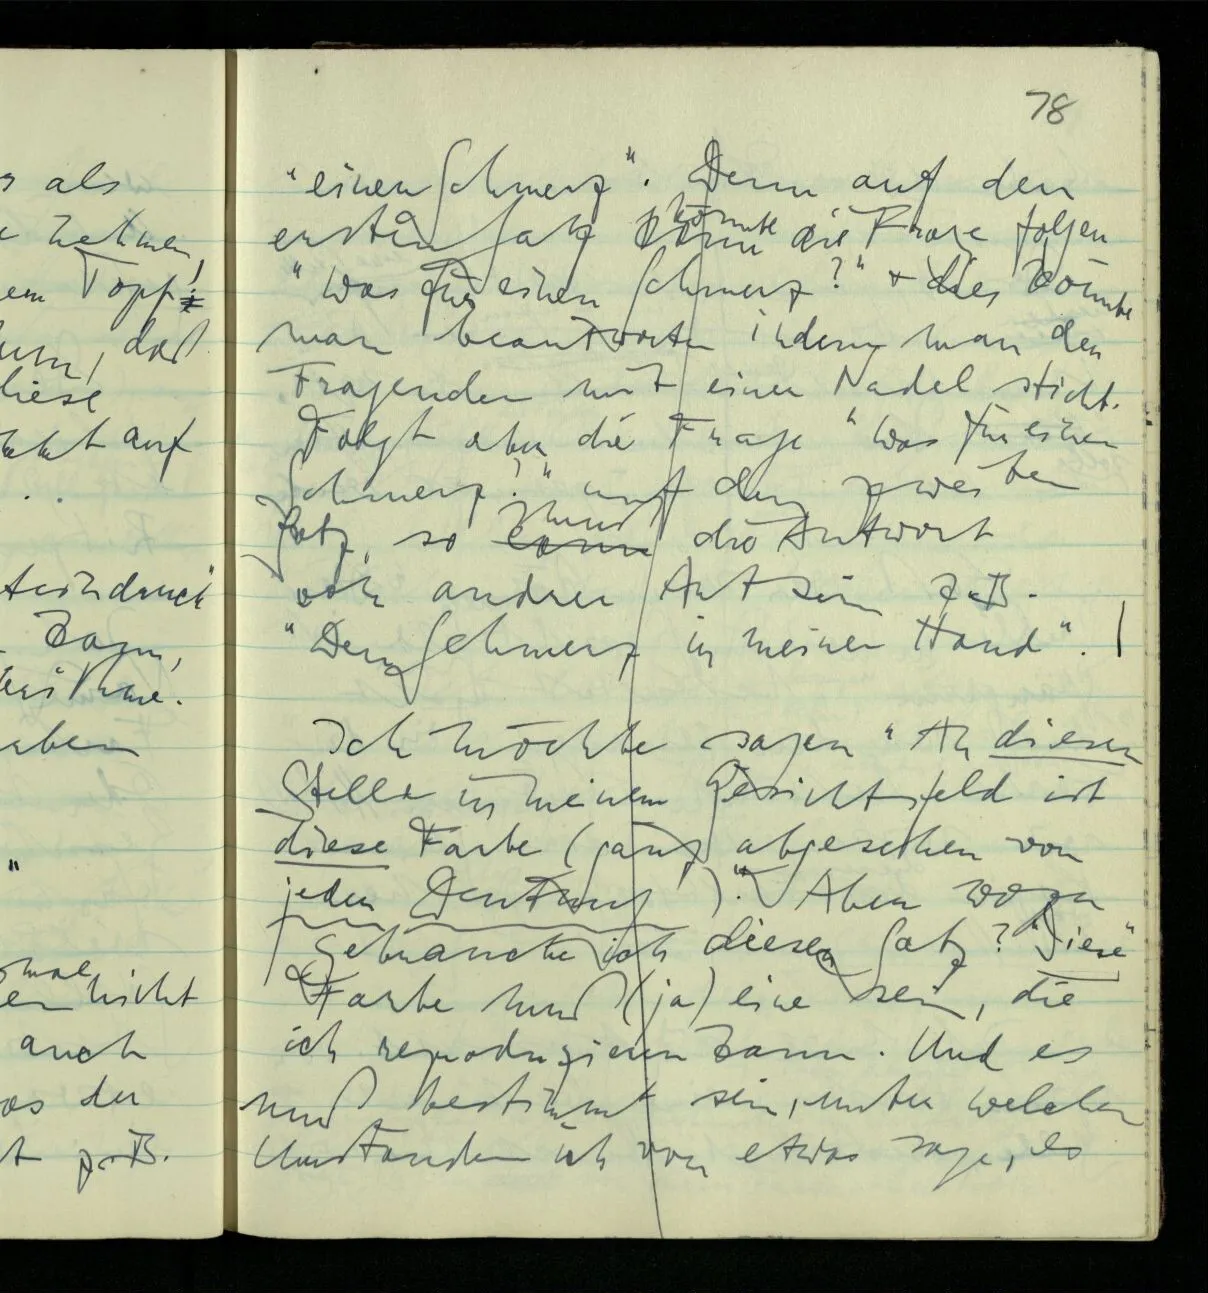 78
als
nehmen,
Topf
, daß
diese
auf
Zorn,
aben
"
mal
nicht
auch
was der
z.B.
"einen Schmerz". Denn auf den
ersten Satz kann könnte die Frage folgen
"Was für einen Schmerz?" + dies könnte
man beantworten indem man den
Fragenden mit einer Nadel sticht.
Folgt aber die Frage "Was für einen
Schmerz?" auf den zweiten
Satz, so kann muß die Antwort
von andrer Art sein z.B.
"Der Schmerz in meiner Hand". |
Ich möchte sagen "An dieser
Stelle in meinem Gesichtsfeld ist
diese Farbe (ganz abgesehen von
jeder Deutung)". Aber wozu
gebrauche ich diesen Satz? "Diese"
Farbe muß (ja) eine sein, die
ich reproduzieren kann. Und es
muß bestimmt sein, unter welchen
Umständen ich von etwas sage, es